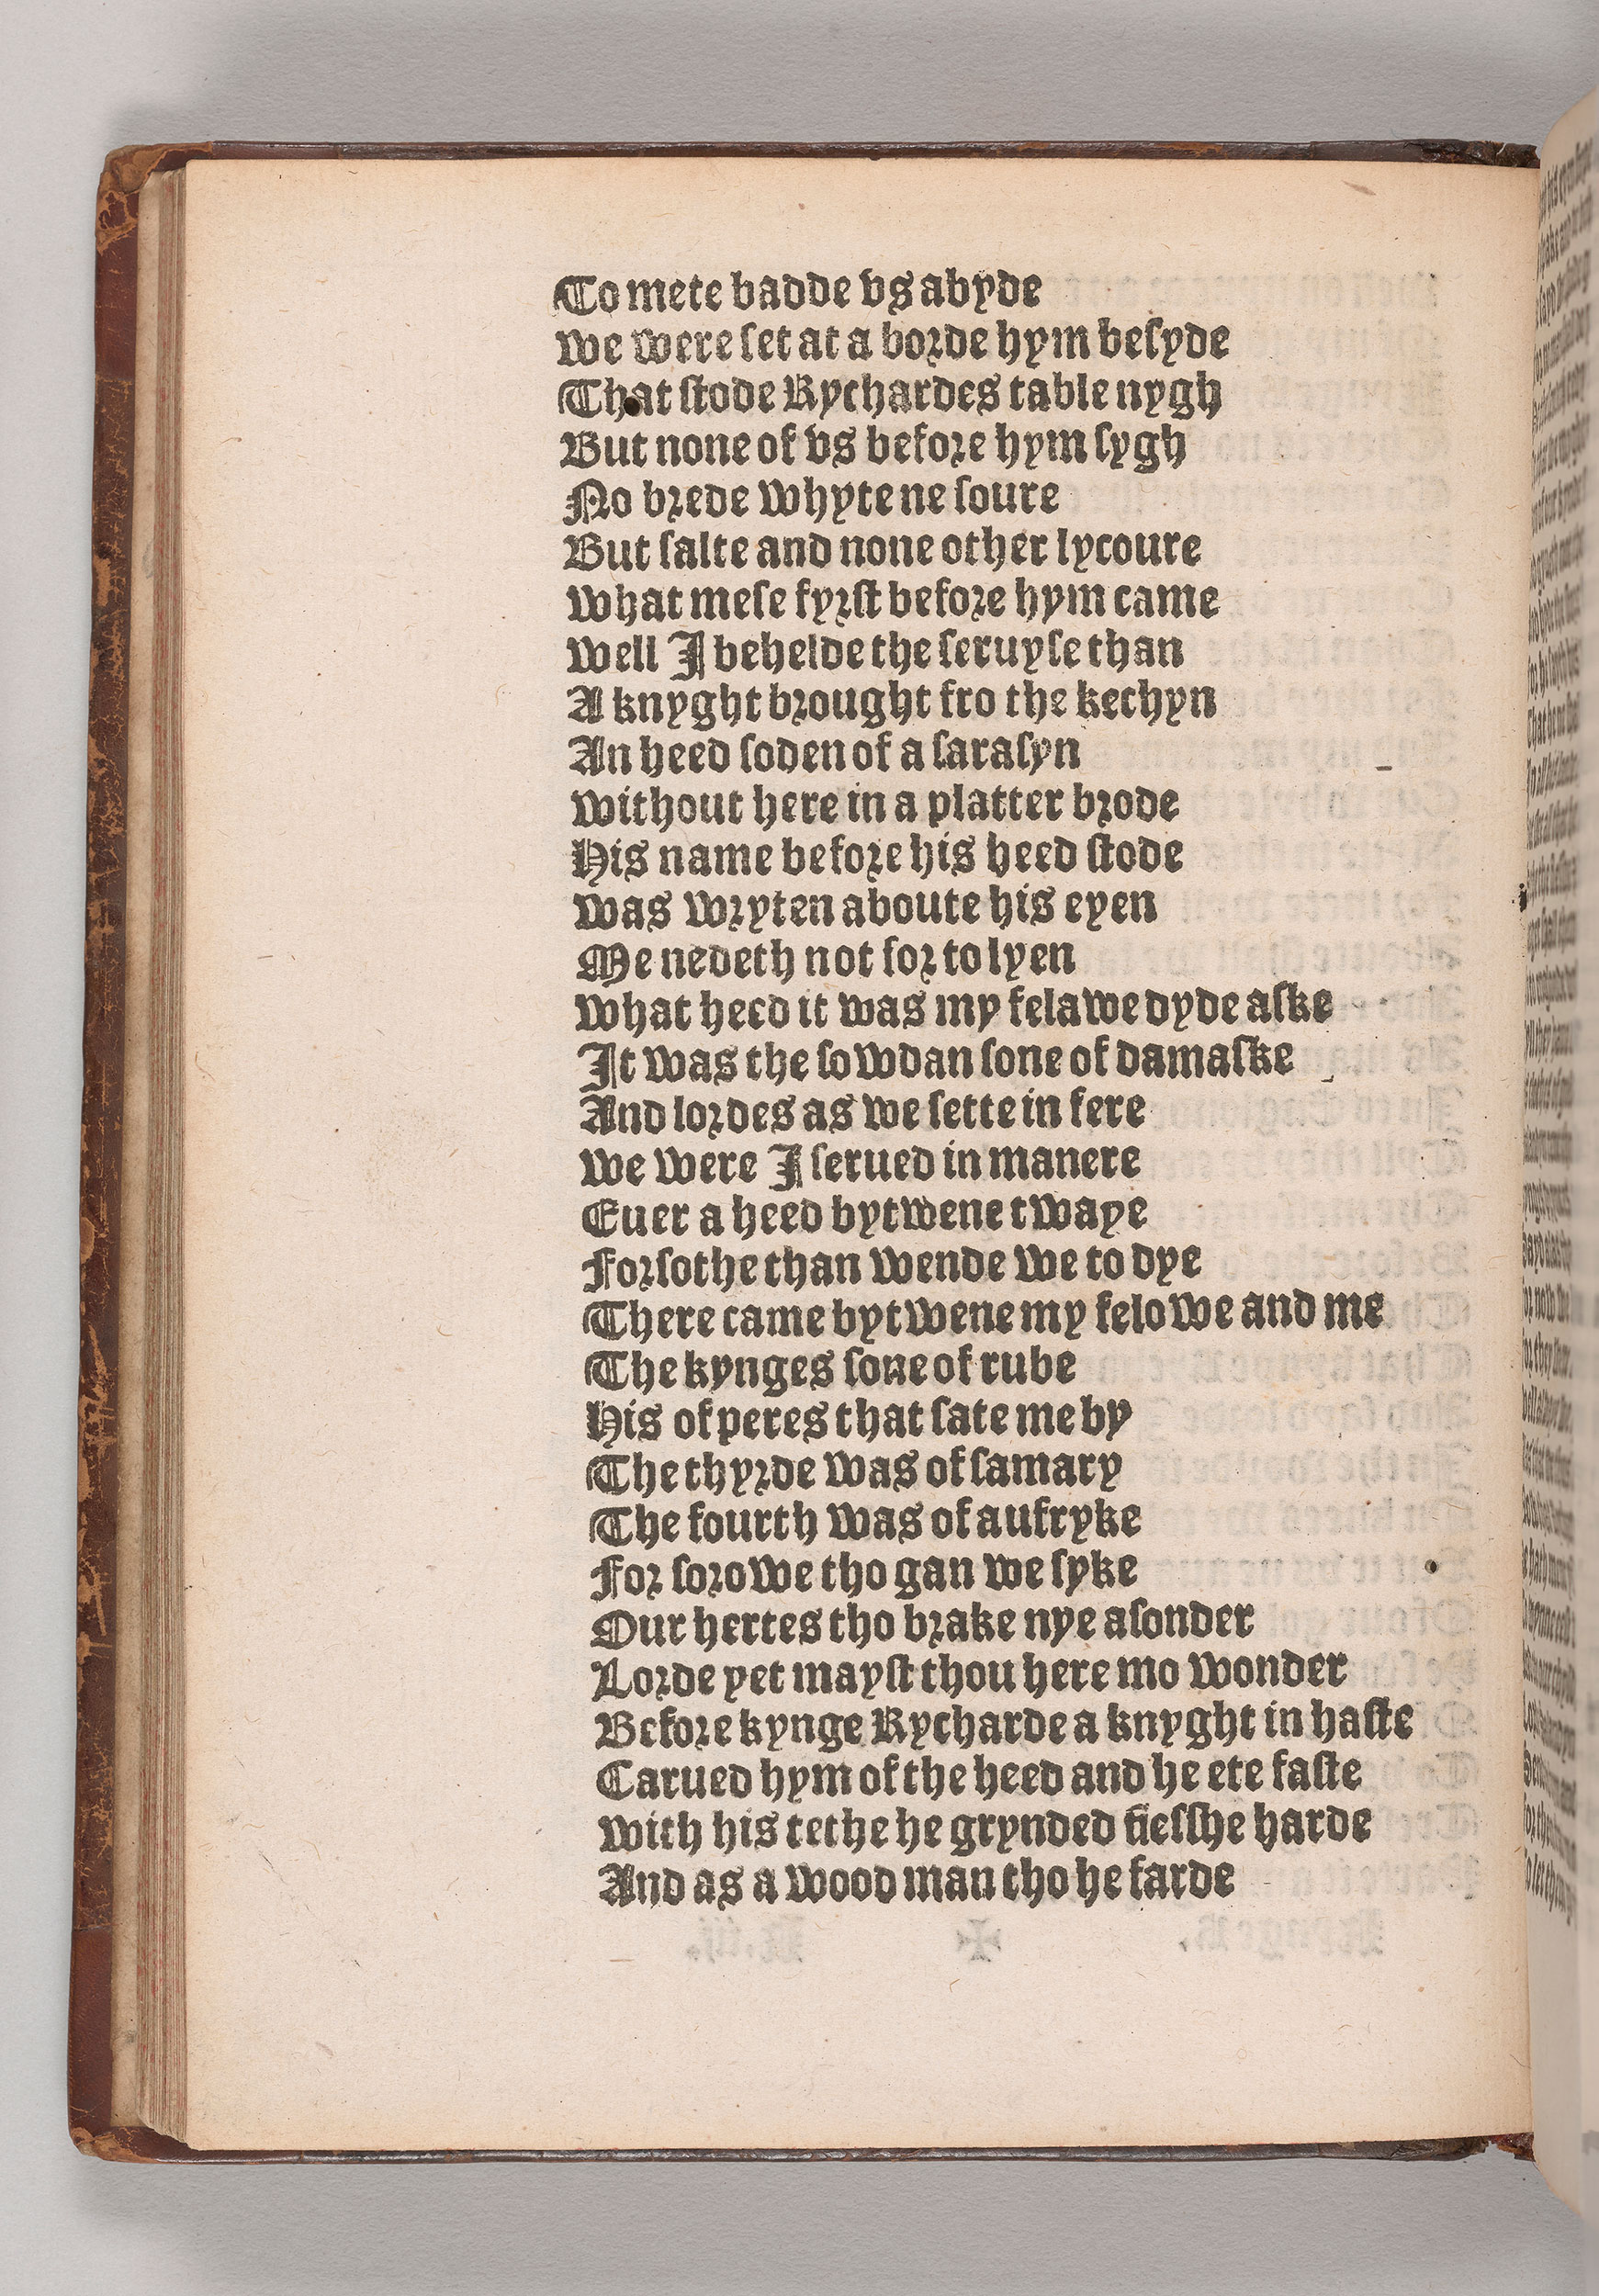 To mete badde vs abyde
we were ſet at a borde hym beſyde
That ſtode Rychardes table nygh
But none of vs before hym ſygh
No brede whyte ne ſoure
But ſalte and none other lycoure
what meſe fyrſt before hym came
well I behelde the ſeruyſe than
A knyght brought fro the kechyn
An heed ſoden of a ſaraſyn
without here in a platter brode
His name before his heed ſtode
was wryten aboute his eyen
Me nedeth not for to lyen
what heed it was my felawe dyde aſke
It was the ſowdan ſone of damaſke
And lordes as we ſette in fere
we were I ſerued in manere
Euer a heed bytwene twaye
Forſothe than wende we to dye
There came bytwene my felowe and me
The kynges ſone of rube
His of peres that ſate me by
The thyrde was of ſamary
The fourth was of aufryke
For ſorowe tho gan we ſyke
Our hertes tho brake nye aſonder
Lorde yet mayſt thou here mo wonder
Before kynge Rycharde a knyght in haſte
Carued hym of the heed and he ete faſte
with his tethe he grynded fleſſhe harde
And as a wood man tho he farde